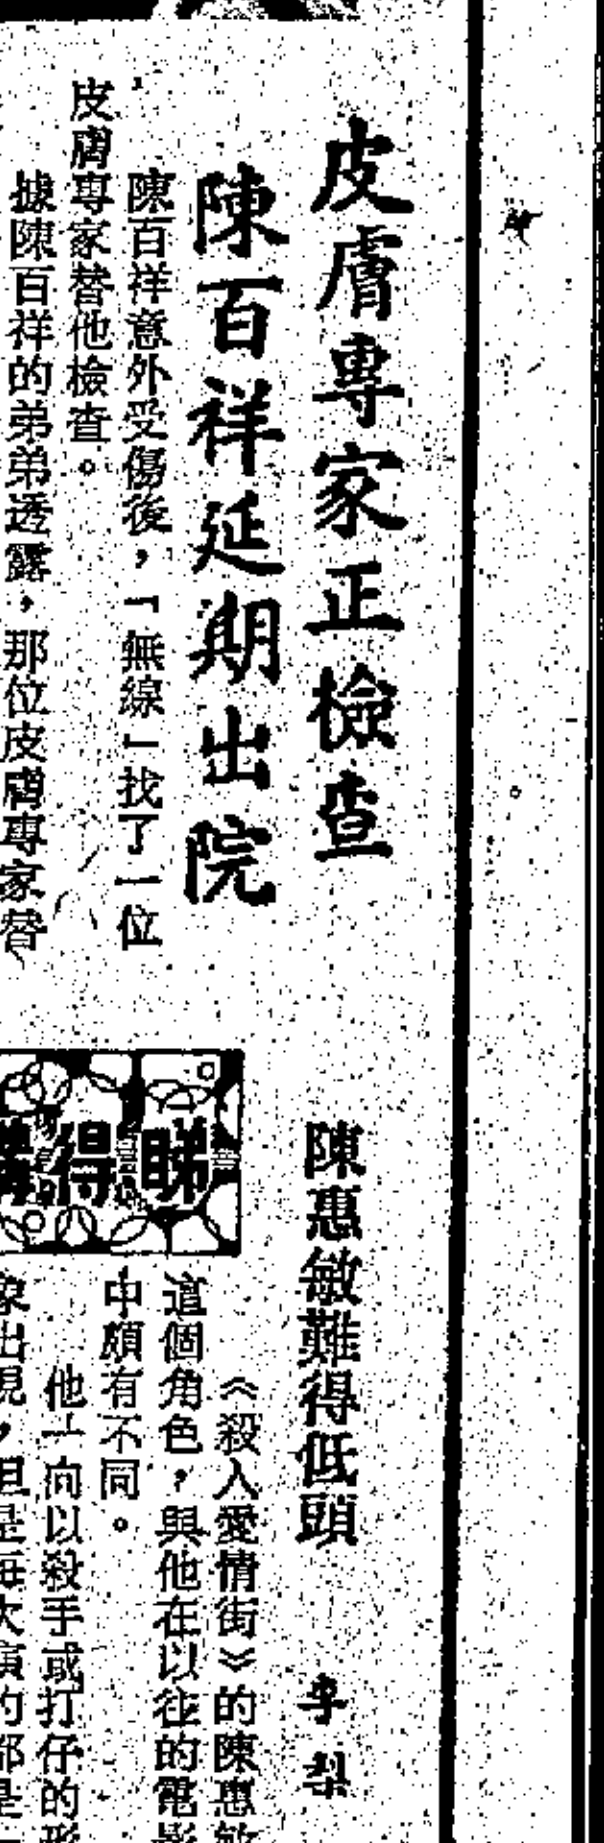 皮膚專家正檢查
陳百祥延期出院
陳百祥意外受傷後，「無線」找了一位
皮膚專家替他檢查。
據陳百祥的弟弟透露，那位皮膚專家替
睇得講
陳惠敏難得低頭
李梨
《殺入愛情街》的陳惠敏
這個角色，與他在以往的電影
中頗有不同。
他一向以殺手或打仔的形
象出現，但是每次演的都是